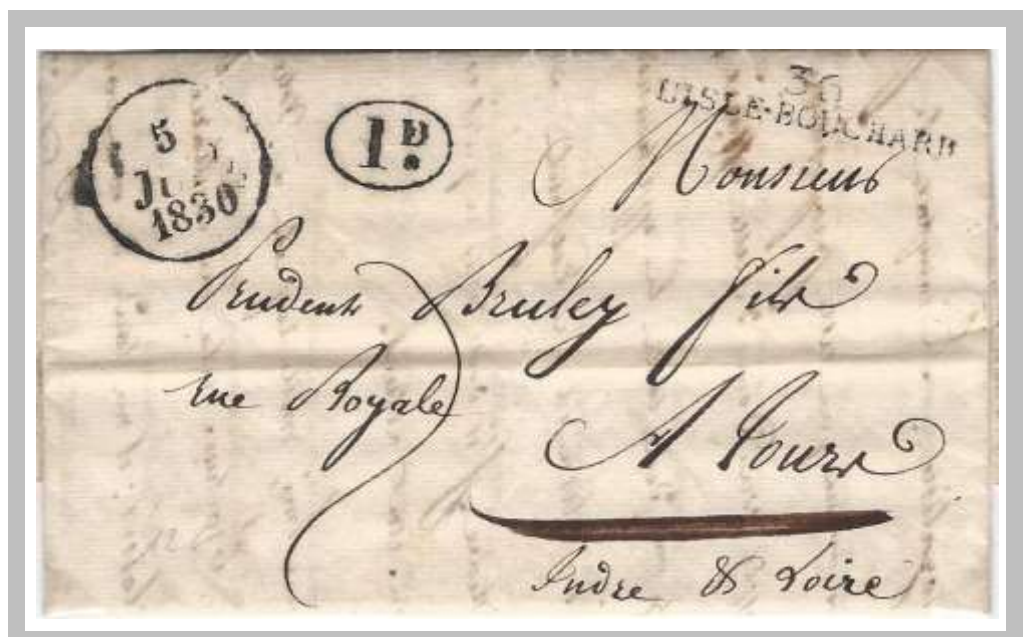 5
1830
1D.
36
L'ISLE-BOUCHARD
Monsieur
Prudent Bruley fils
rue Royale
A Tours
Indre & Loire